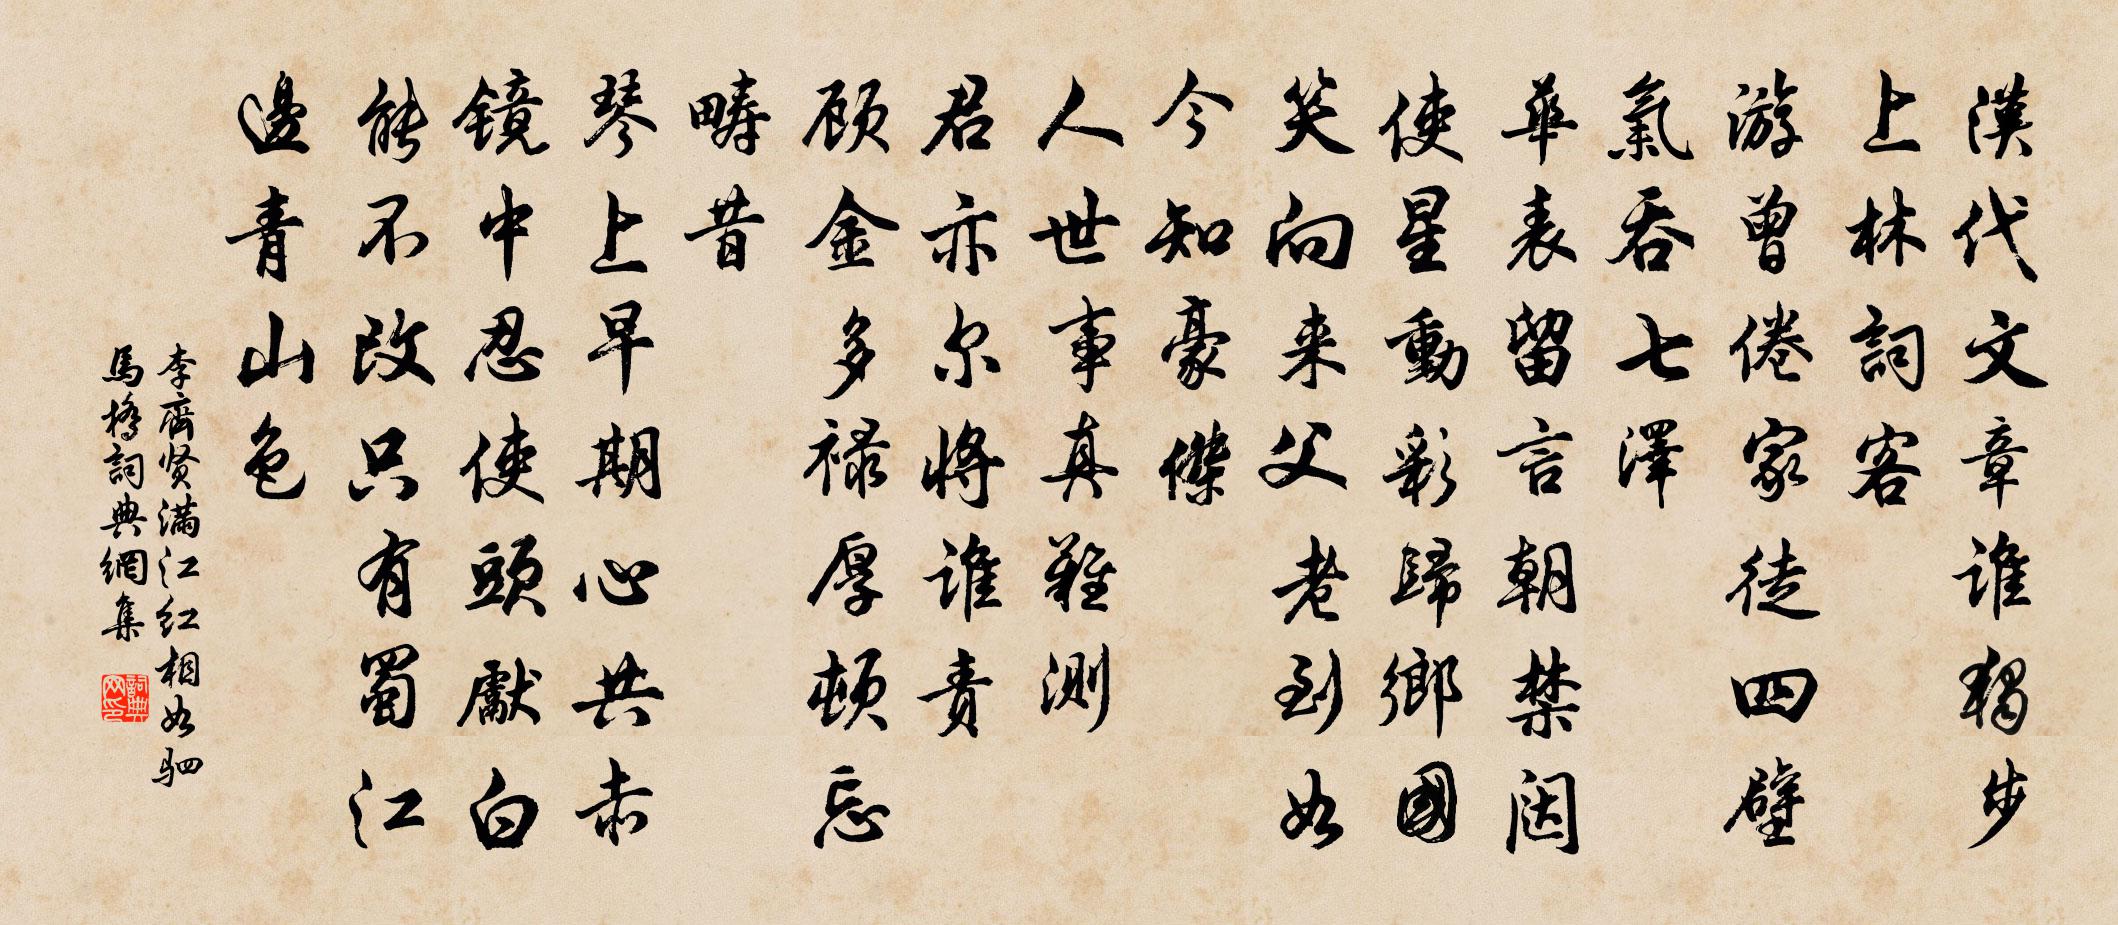 漢代文章谁獨步
上林詞客
游曾倦家徒四壁
氣吞七澤
華表留言朝禁闼
使星動彩歸鄉國
笑向来父老到如
今知豪傑
人世事真難測
君亦尔将谁责
顾金多禄厚頓忘
畴昔
琴上早期心共赤
镜中忍使頭獻白
能不改只有蜀江
邊青山色
李齊贤满江红相如驷
馬橋詞典網集
詞典网印